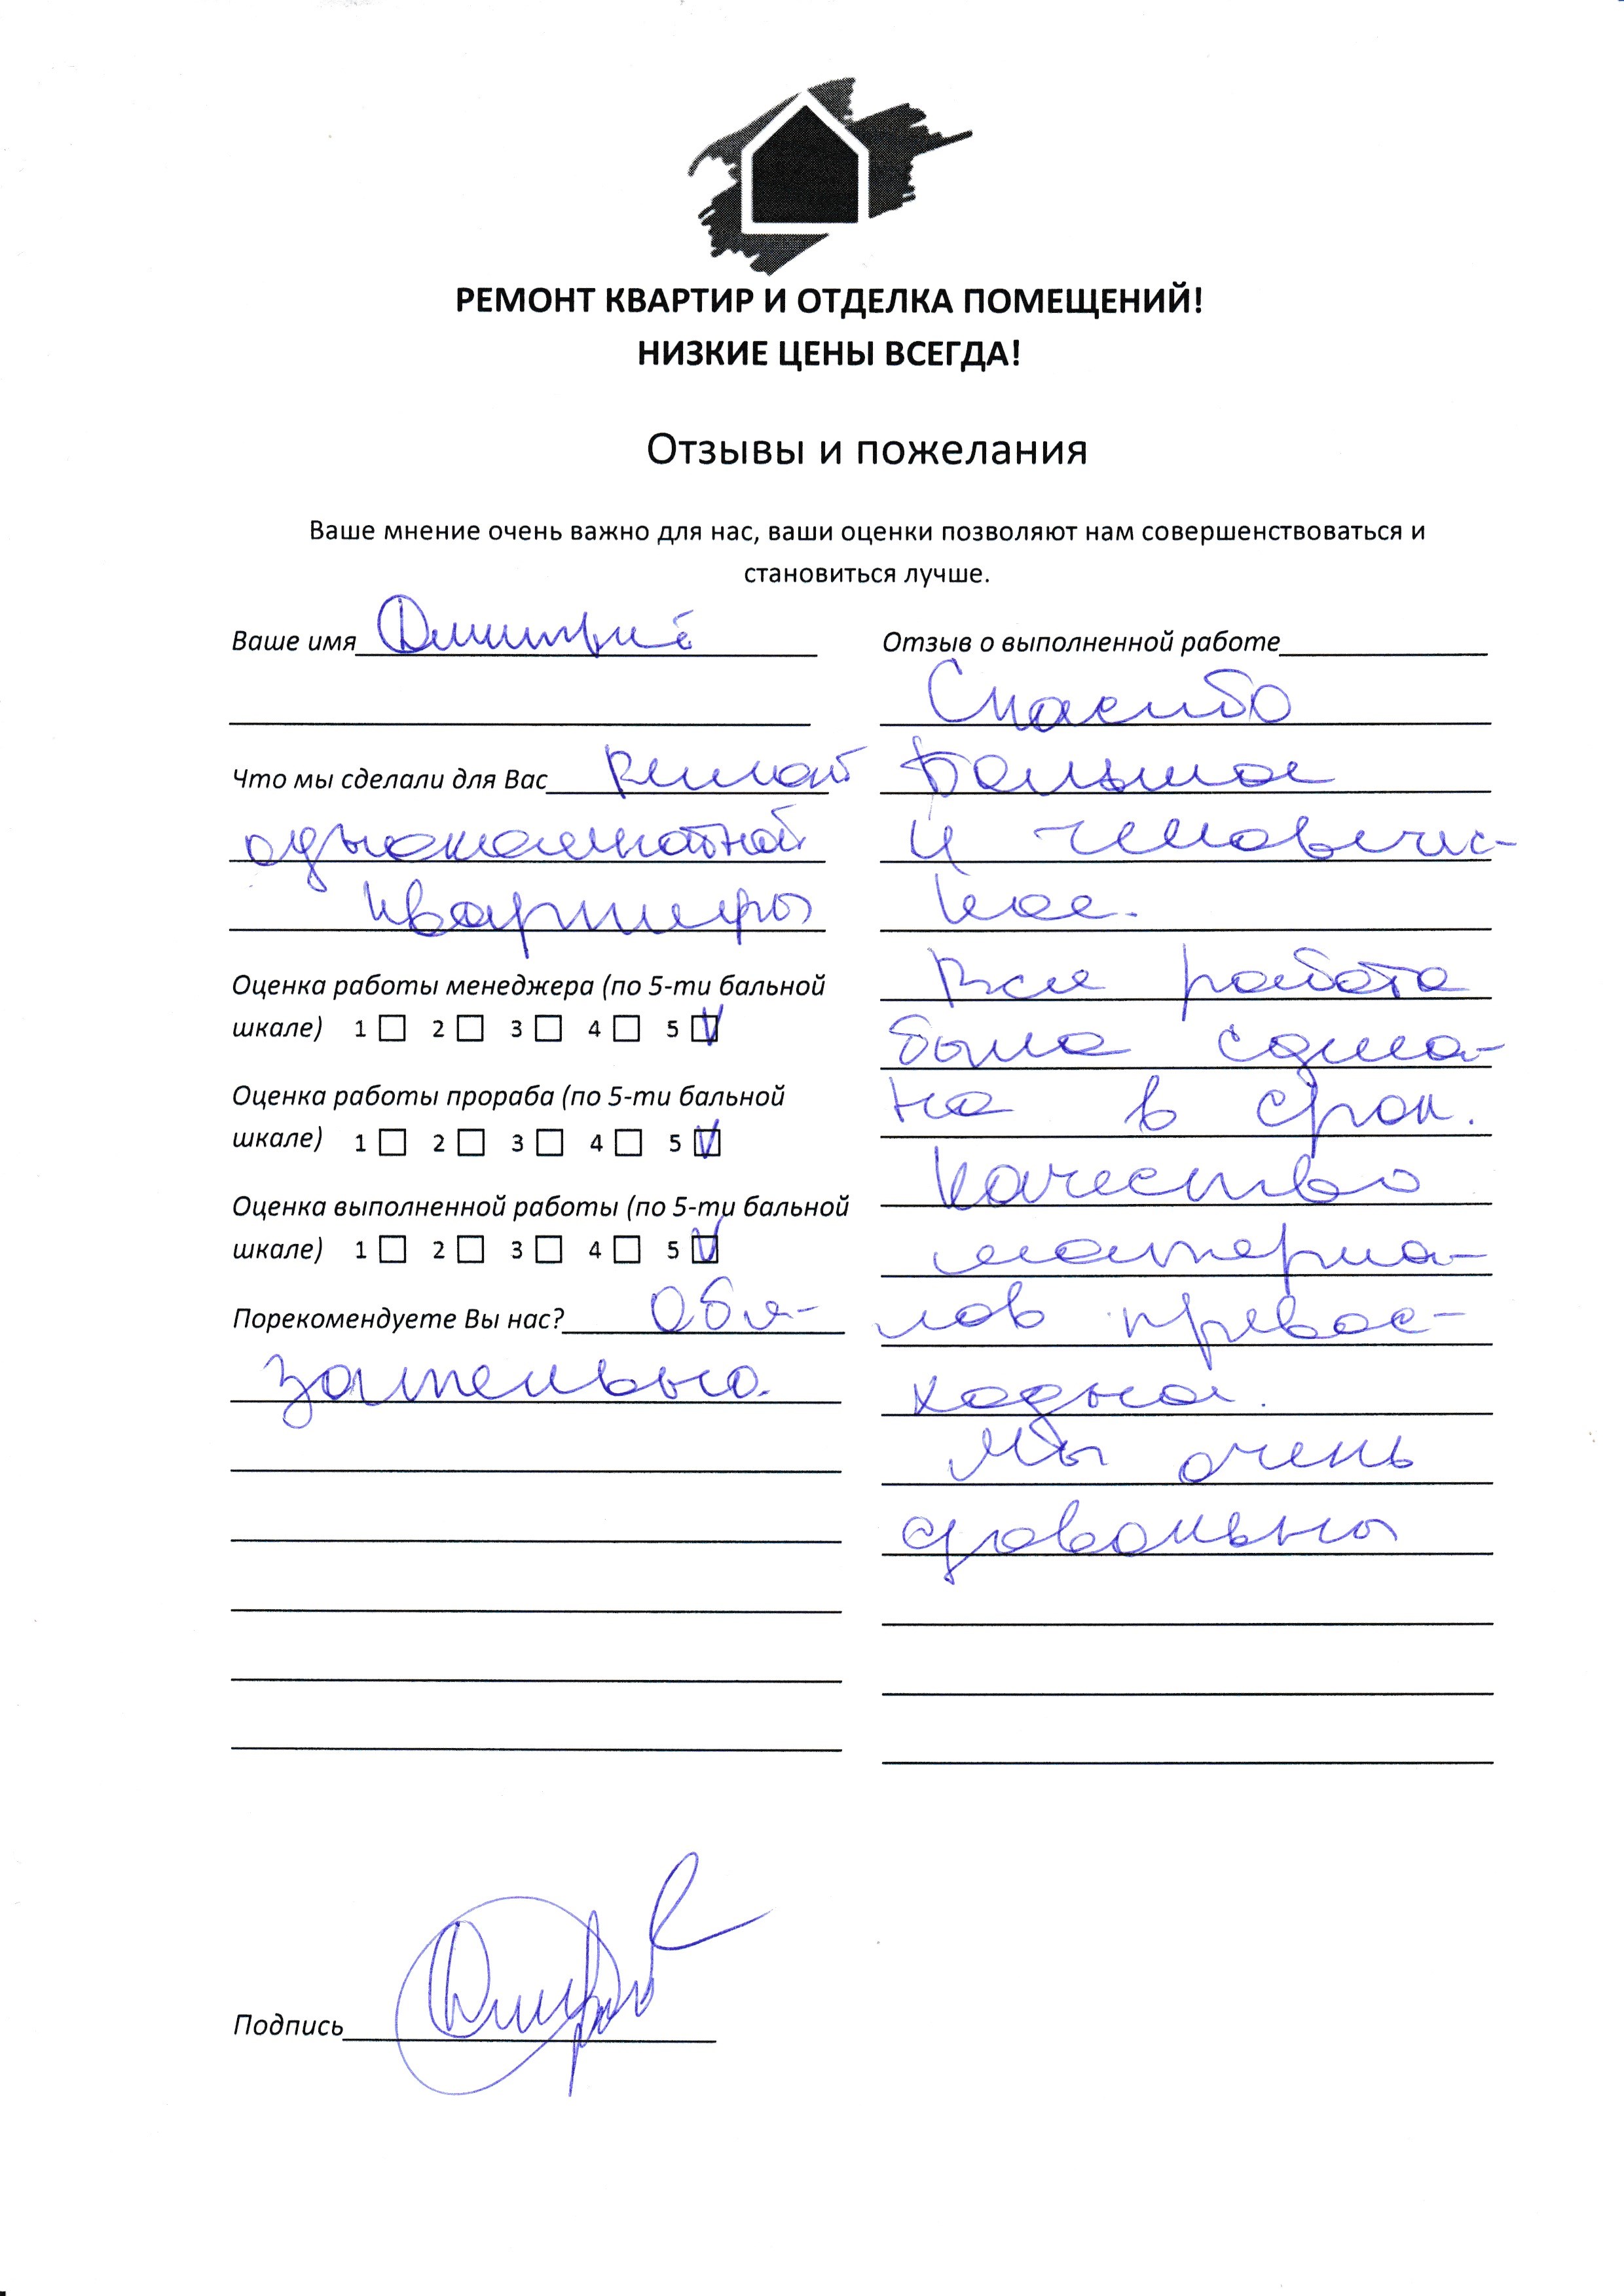 РЕМОНТ КВАРТИР И ОТДЕЛКА ПОМЕЩЕНИЙ!
НИЗКИЕ ЦЕНЫ ВСЕГДА!
Отзывы и пожелания
Ваше мнение очень важно для нас, ваши оценки позволяют нам совершенствоваться и
становиться лучше.
Ваше имя Дмитрий
Что мы сделали для Вас Ремонт
однокомнатной
квартиры
Оценка работы менеджера (по 5-ти бальной
шкале) 1 ☐ 2 ☐ 3 ☐ 4 ☐ 5 ☑
Оценка работы прораба (по 5-ти бальной
шкале) 1 ☐ 2 ☐ 3 ☐ 4 ☐ 5 ☑
Оценка выполненной работы (по 5-ти бальной
шкале) 1 ☐ 2 ☐ 3 ☐ 4 ☐ 5 ☑
Порекомендуете Вы нас? Обя-
зательно.
Отзыв о выполненной работе
Спасибо
Большое
и человечес-
кое.
Вся работа
была сдела-
на в срок.
Качество
материа-
лов превос-
ходное.
Мы очень
довольны
Подпись